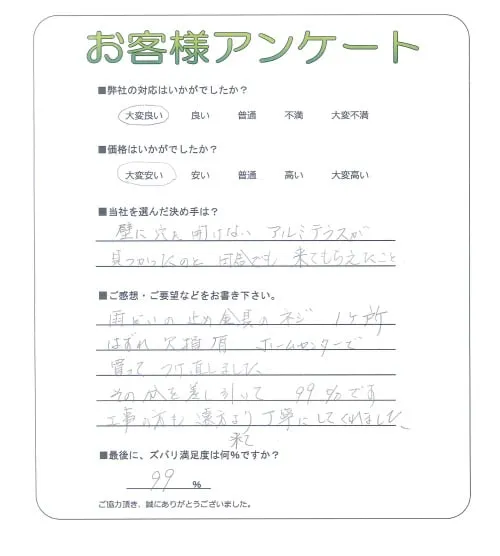 お客様アンケート
■弊社の対応はいかがでしたか？
大変良い 良い 普通 不満 大変不満
■価格はいかがでしたか？
大変安い 安い 普通 高い 大変高い
■当社を選んだ決め手は？
壁に穴を開けない アルミテラスが
見つかったのと 田舎でも 来てもらえたこと
■ご感想・ご要望などをお書き下さい。
雨どいの止め金具のネジ 1ヶ所
はずれ 欠損 ホームセンターで
買って つけ直しました
その 成を差し引いて 99%です
工事の方も 遠方より 丁寧にしてくれました
来て
■最後に、ズバリ満足度は何%ですか？
99 %
ご協力頂き、誠にありがとうございました。